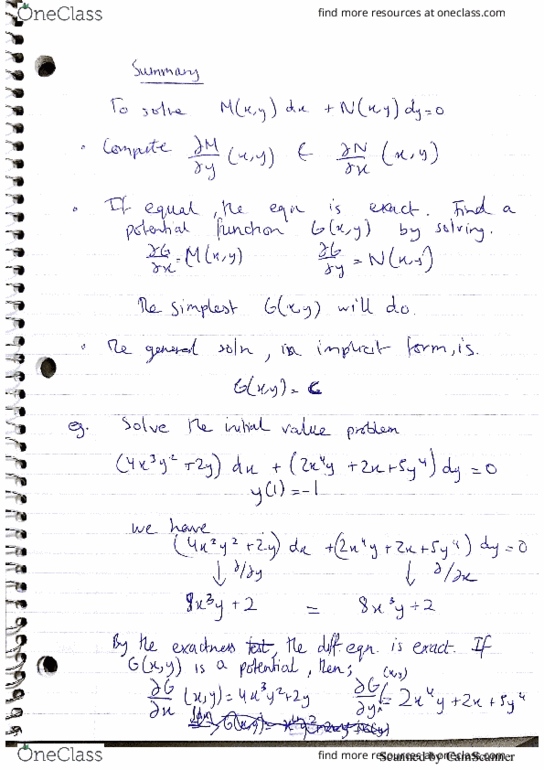 OneClass
find more resources at oneclass.com
Summary
To solve M(x,y) dx + N(x,y) dy=0
• Compute ∂M/∂y (x,y) & ∂N/∂x (x,y)
• If equal, the eqn is exact. Find a
potential function G(x,y) by solving.
∂G/∂x = M(x,y) ∂G/∂y = N(x,y)
The simplest G(x,y) will do.
• The general soln, in implicit form, is.
G(x,y) = C
eg. Solve the initial value problem
(4x³y² + 2y) dx + (2x⁴y + 2x + 5y⁴) dy = 0
y(1) = -1
we have
(4x³y² + 2y) dx + (2x⁴y + 2x + 5y⁴) dy = 0
↓ ∂/∂y ↓ ∂/∂x
8x³y + 2 = 8x³y + 2
By the exactness test, the diff eqn. is exact. If
G(x,y) is a potential, then;
∂G/∂x (x,y) = 4x³y² + 2y ∂G/∂y (x,y) = 2x⁴y + 2x + 5y⁴
OneClass
find more resources at oneclass.com
Scanned by CamScanner